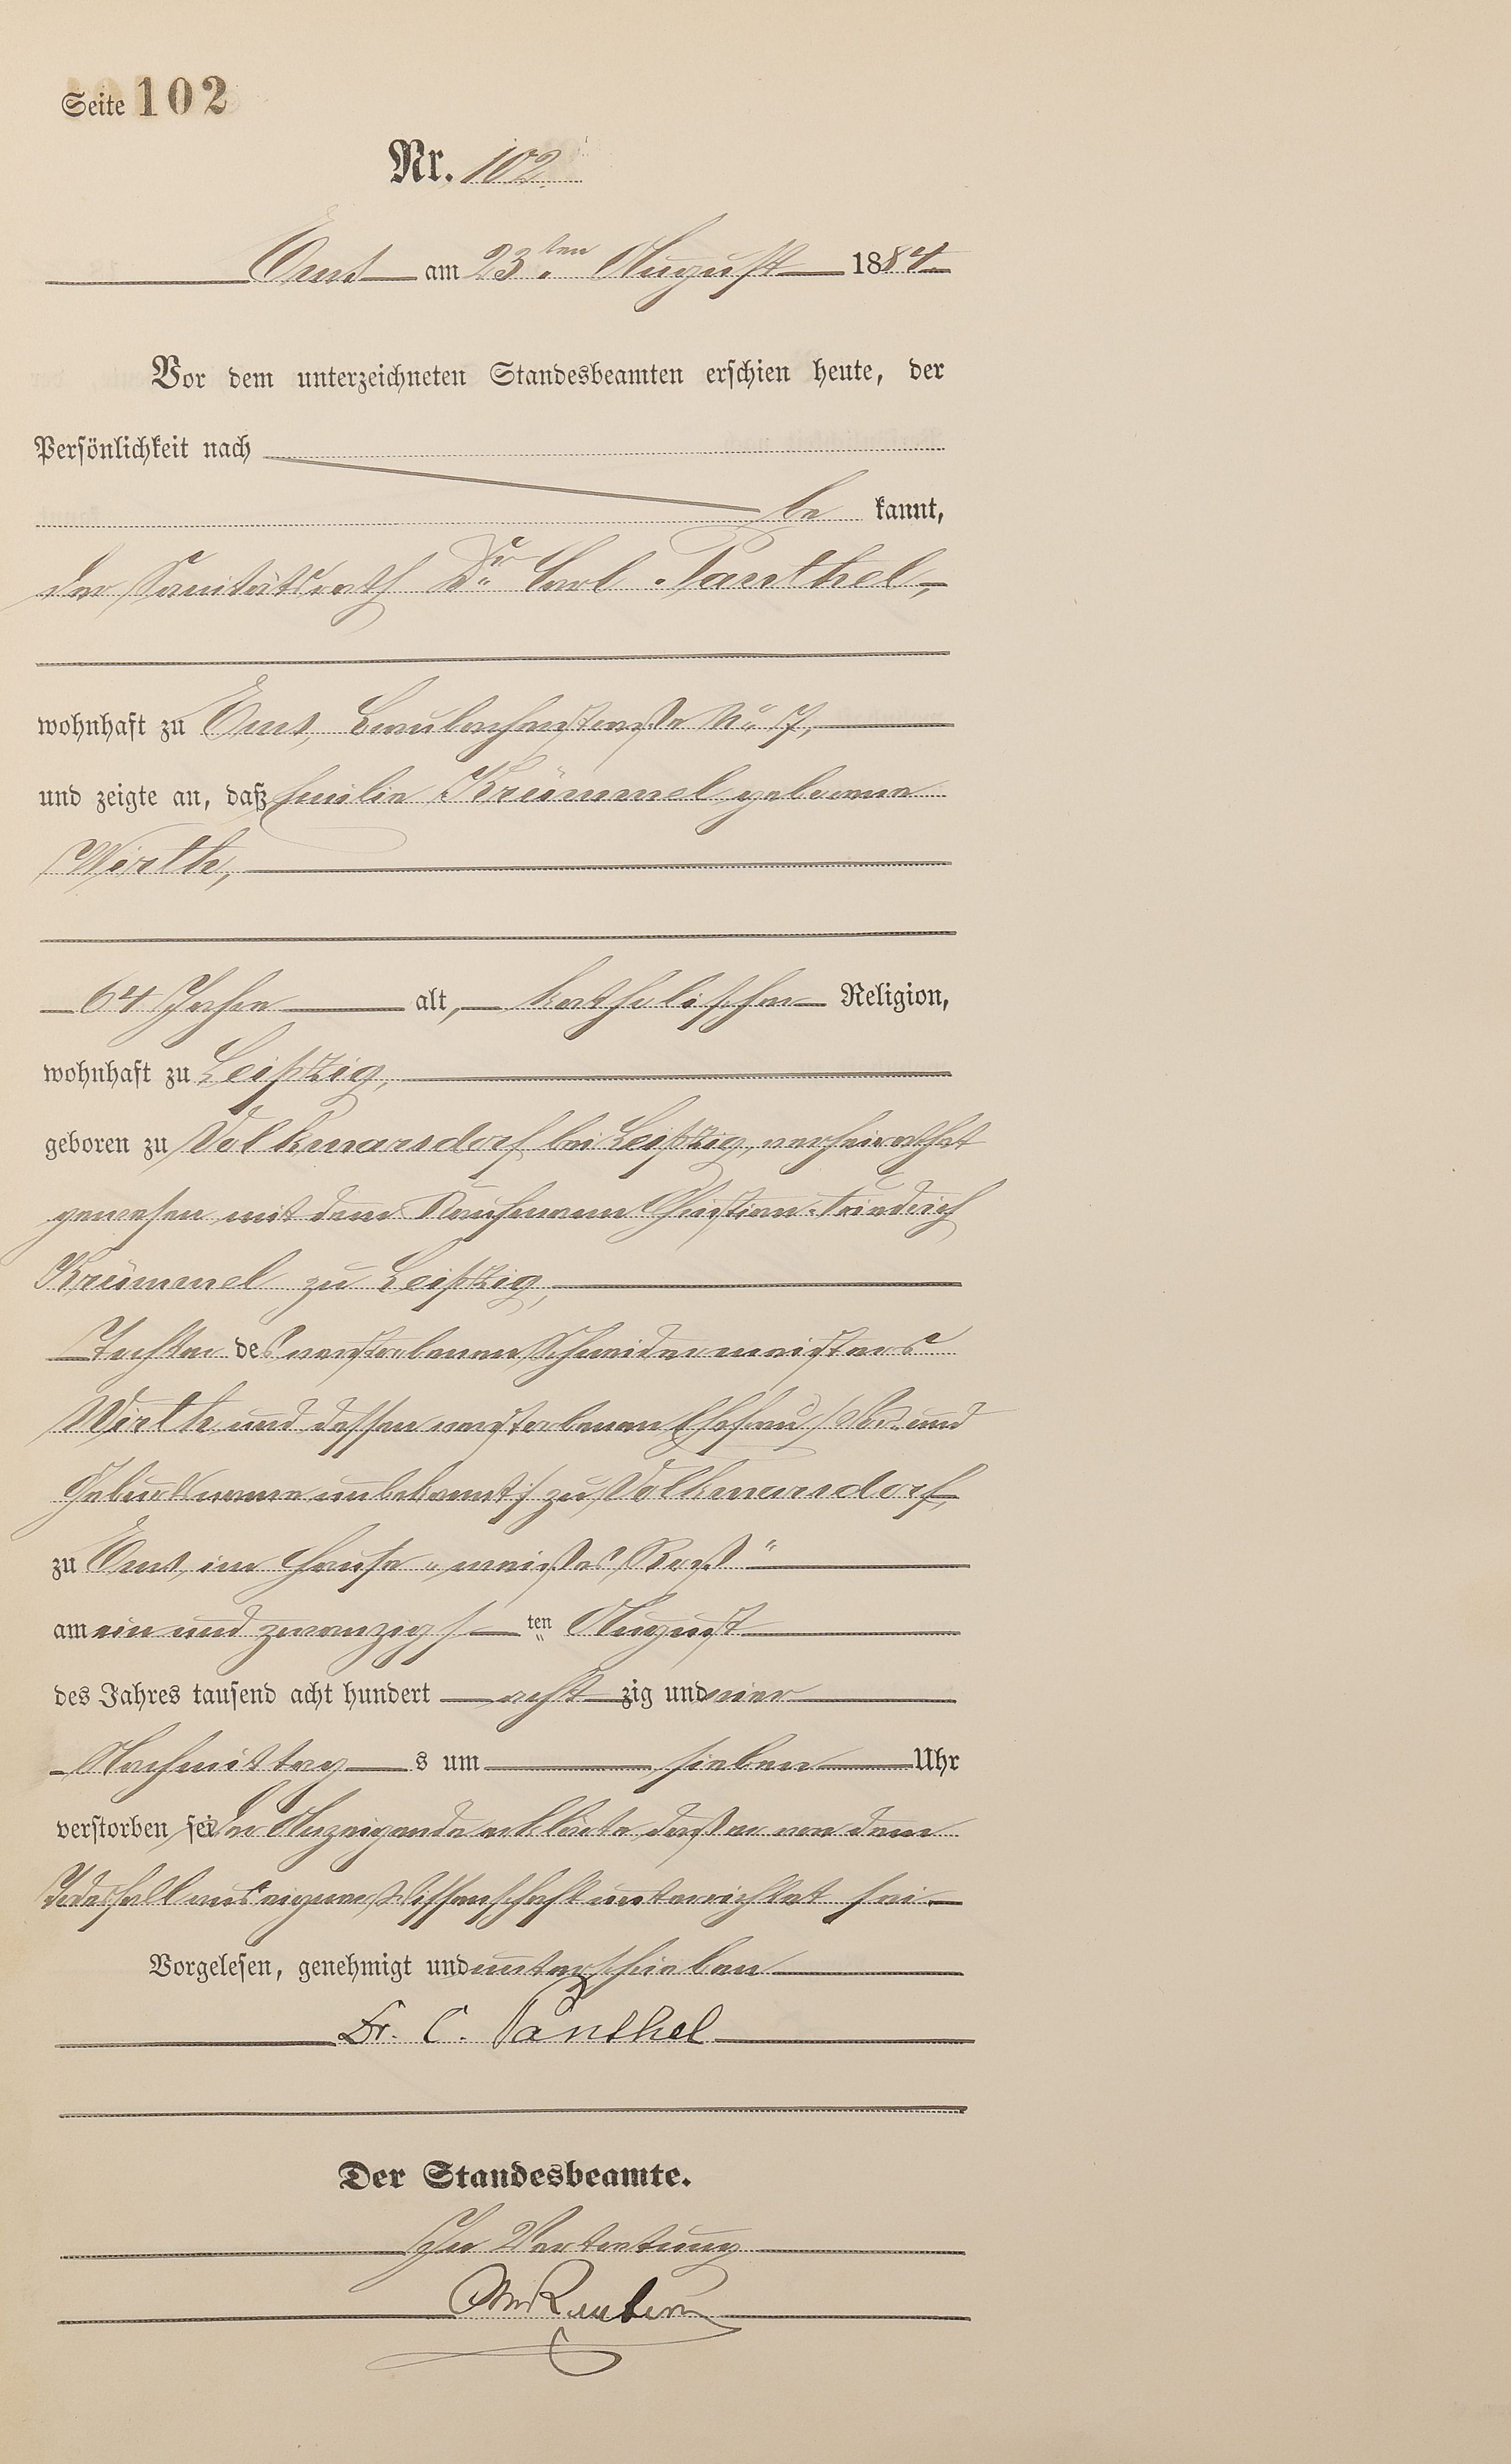 Seite 102
Nr. 102.
Ems am 23ten August 1884.
Vor dem unterzeichneten Standesbeamten erschien heute, der
Persönlichkeit nach
be kannt,
der Sanitätsrath Dr. Carl Panthel,
wohnhaft zu Ems, Braubacherstraße No. 7,
und zeigte an, daß Emilie Krümmel geborene
Wirth,
64 Jahre alt, katholischer Religion,
wohnhaft zu Leipzig,
geboren zu Volkmarsdorf bei Leipzig, verheirathet
gewesen mit dem Kaufmann Christian Friedrich
Krümmel zu Leipzig,
Tochter des verstorbenen Schneidermeisters
Wirth und dessen verstorbenen Ehefrau /: Vor- und
Geburtsname unbekannt :/ zu Volkmarsdorf,
zu Ems, im Hause „weißes Roß“
am ein und zwanzigs ten August
des Jahres tausend acht hundert acht zig und vier
Nachmittag s um sieben Uhr
verstorben sei. Der Anzeigende erklärte daß er von dem
Todesfall aus eigener Wissenschaft unterrichtet sei.
Vorgelesen, genehmigt und unterschrieben
Dr. C. Panthel
Der Standesbeamte.
In Vertretung